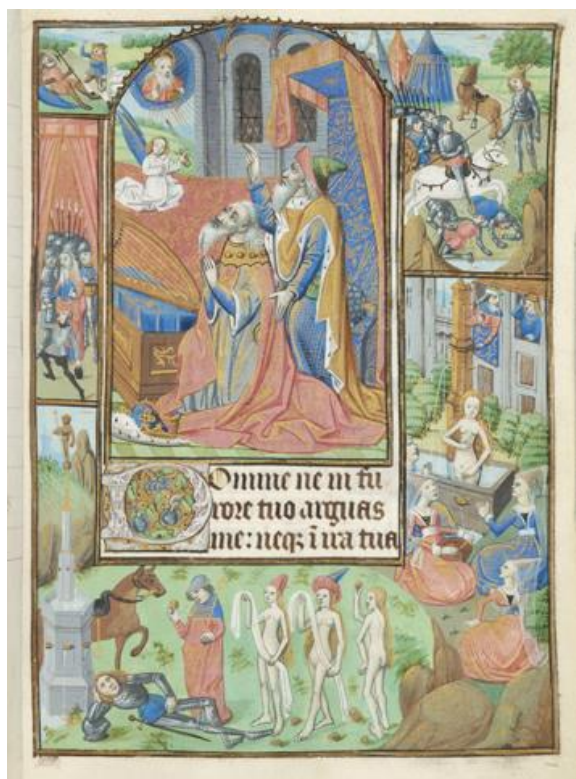 Domine ne in fu
rore tuo arguas
me: neqꝫ ī ira tua